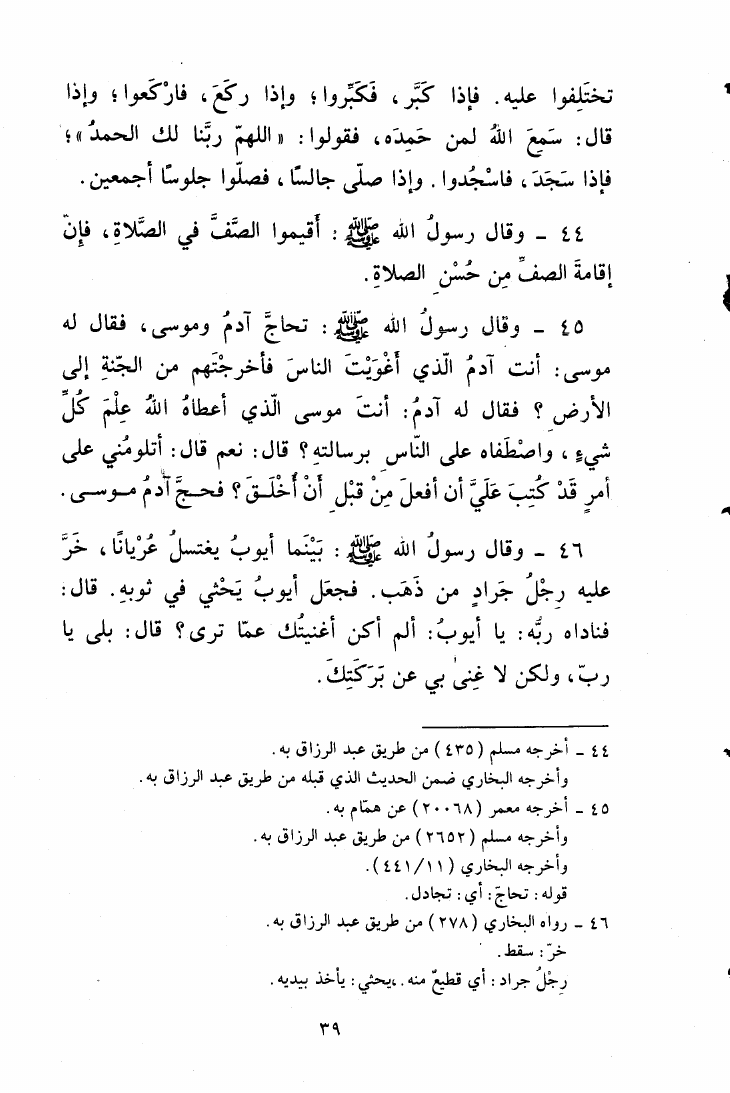 تختَلِفوا عليه. فإذا كَبَّر، فَكَبِّروا؛ وإذا ركَعَ، فارْكَعوا؛ وإذا
قال: سَمِعَ اللهُ لمن حَمِدَه، فقولوا: «اللهمّ ربَّنا لك الحمدُ»؛
فإذا سَجَدَ، فاسْجُدوا. وإذا صلّى جالسًا، فصلّوا جلوسًا أجمعين.
٤٤ - وقال رسولُ الله ﷺ: أَقيموا الصَّفَّ في الصَّلاةِ، فإنّ
إقامةَ الصفِّ مِن حُسْنِ الصلاةِ.
٤٥ - وقال رسولُ الله ﷺ: تحاجَّ آدمُ وموسى، فقال له
موسى: أنت آدمُ الّذي أَغْوَيْتَ الناسَ فأخرجْتَهم من الجنّةِ إلى
الأرضِ؟ فقال له آدمُ: أنتَ موسى الّذي أعطاهُ اللهُ عِلْمَ كُلِّ
شيءٍ، واصْطَفاه على النّاسِ برسالتهِ؟ قال: نعم قال: أتلومُني على
أمرٍ قَدْ كُتِبَ عَلَيَّ أن أفعلَ مِنْ قبْلِ أَنْ أُخْلَقَ؟ فحجَّ آدمُ موسى.
٤٦ - وقال رسولُ الله ﷺ: بَيْنَما أيوبُ يغتسلُ عُرْيانًا، خَرَّ
عليه رِجْلُ جَرادٍ من ذَهَب. فجعَل أيوبُ يَحْثي في ثوبهِ. قال:
فناداه ربُّه: يا أيوبُ: ألم أكن أغنيتُك عمّا ترى؟ قال: بلى يا
ربّ، ولكن لا غِنىٰ بي عن بَرَكَتِكَ.
٤٤ - أخرجه مسلم (٤٣٥) من طريق عبد الرزاق به.
وأخرجه البخاري ضمن الحديث الذي قبله من طريق عبد الرزاق به.
٤٥ - أخرجه معمر (٢٠٠٦٨) عن همّام به.
وأخرجه مسلم (٢٦٥٢) من طريق عبد الرزاق به.
وأخرجه البخاري (٤٤١/١١).
قوله: تحاجّ: أي: تجادل.
٤٦ - رواه البخاري (٢٧٨) من طريق عبد الرزاق به.
خرّ: سقط.
رِجْلُ جراد: أي قطيعٌ منه. ،يحثي: يأخذ بيديه.
٣٩